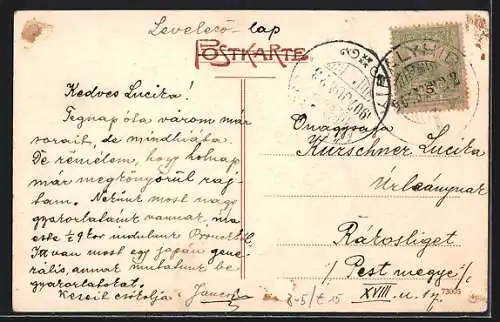 Levelező-lap
POSTKARTE
Kedves Lucika!
Tegnap óta várom már
soraid, de mindhiába.
De remélem, hogy holnap
már megkönyörül raj-
tam. Nekünk most nagy
gyakorlataink vannak, ma
este ½ 9 kor indulunk
Itt van most egy japán gene-
rális, annak mutatunk be
gyakorlatokat.
Kezeit csókolja
Önagysága
Kürschner Lucika
Úrleánynak
Rákosliget
/ Pest megye /
XVIII. u.
73005